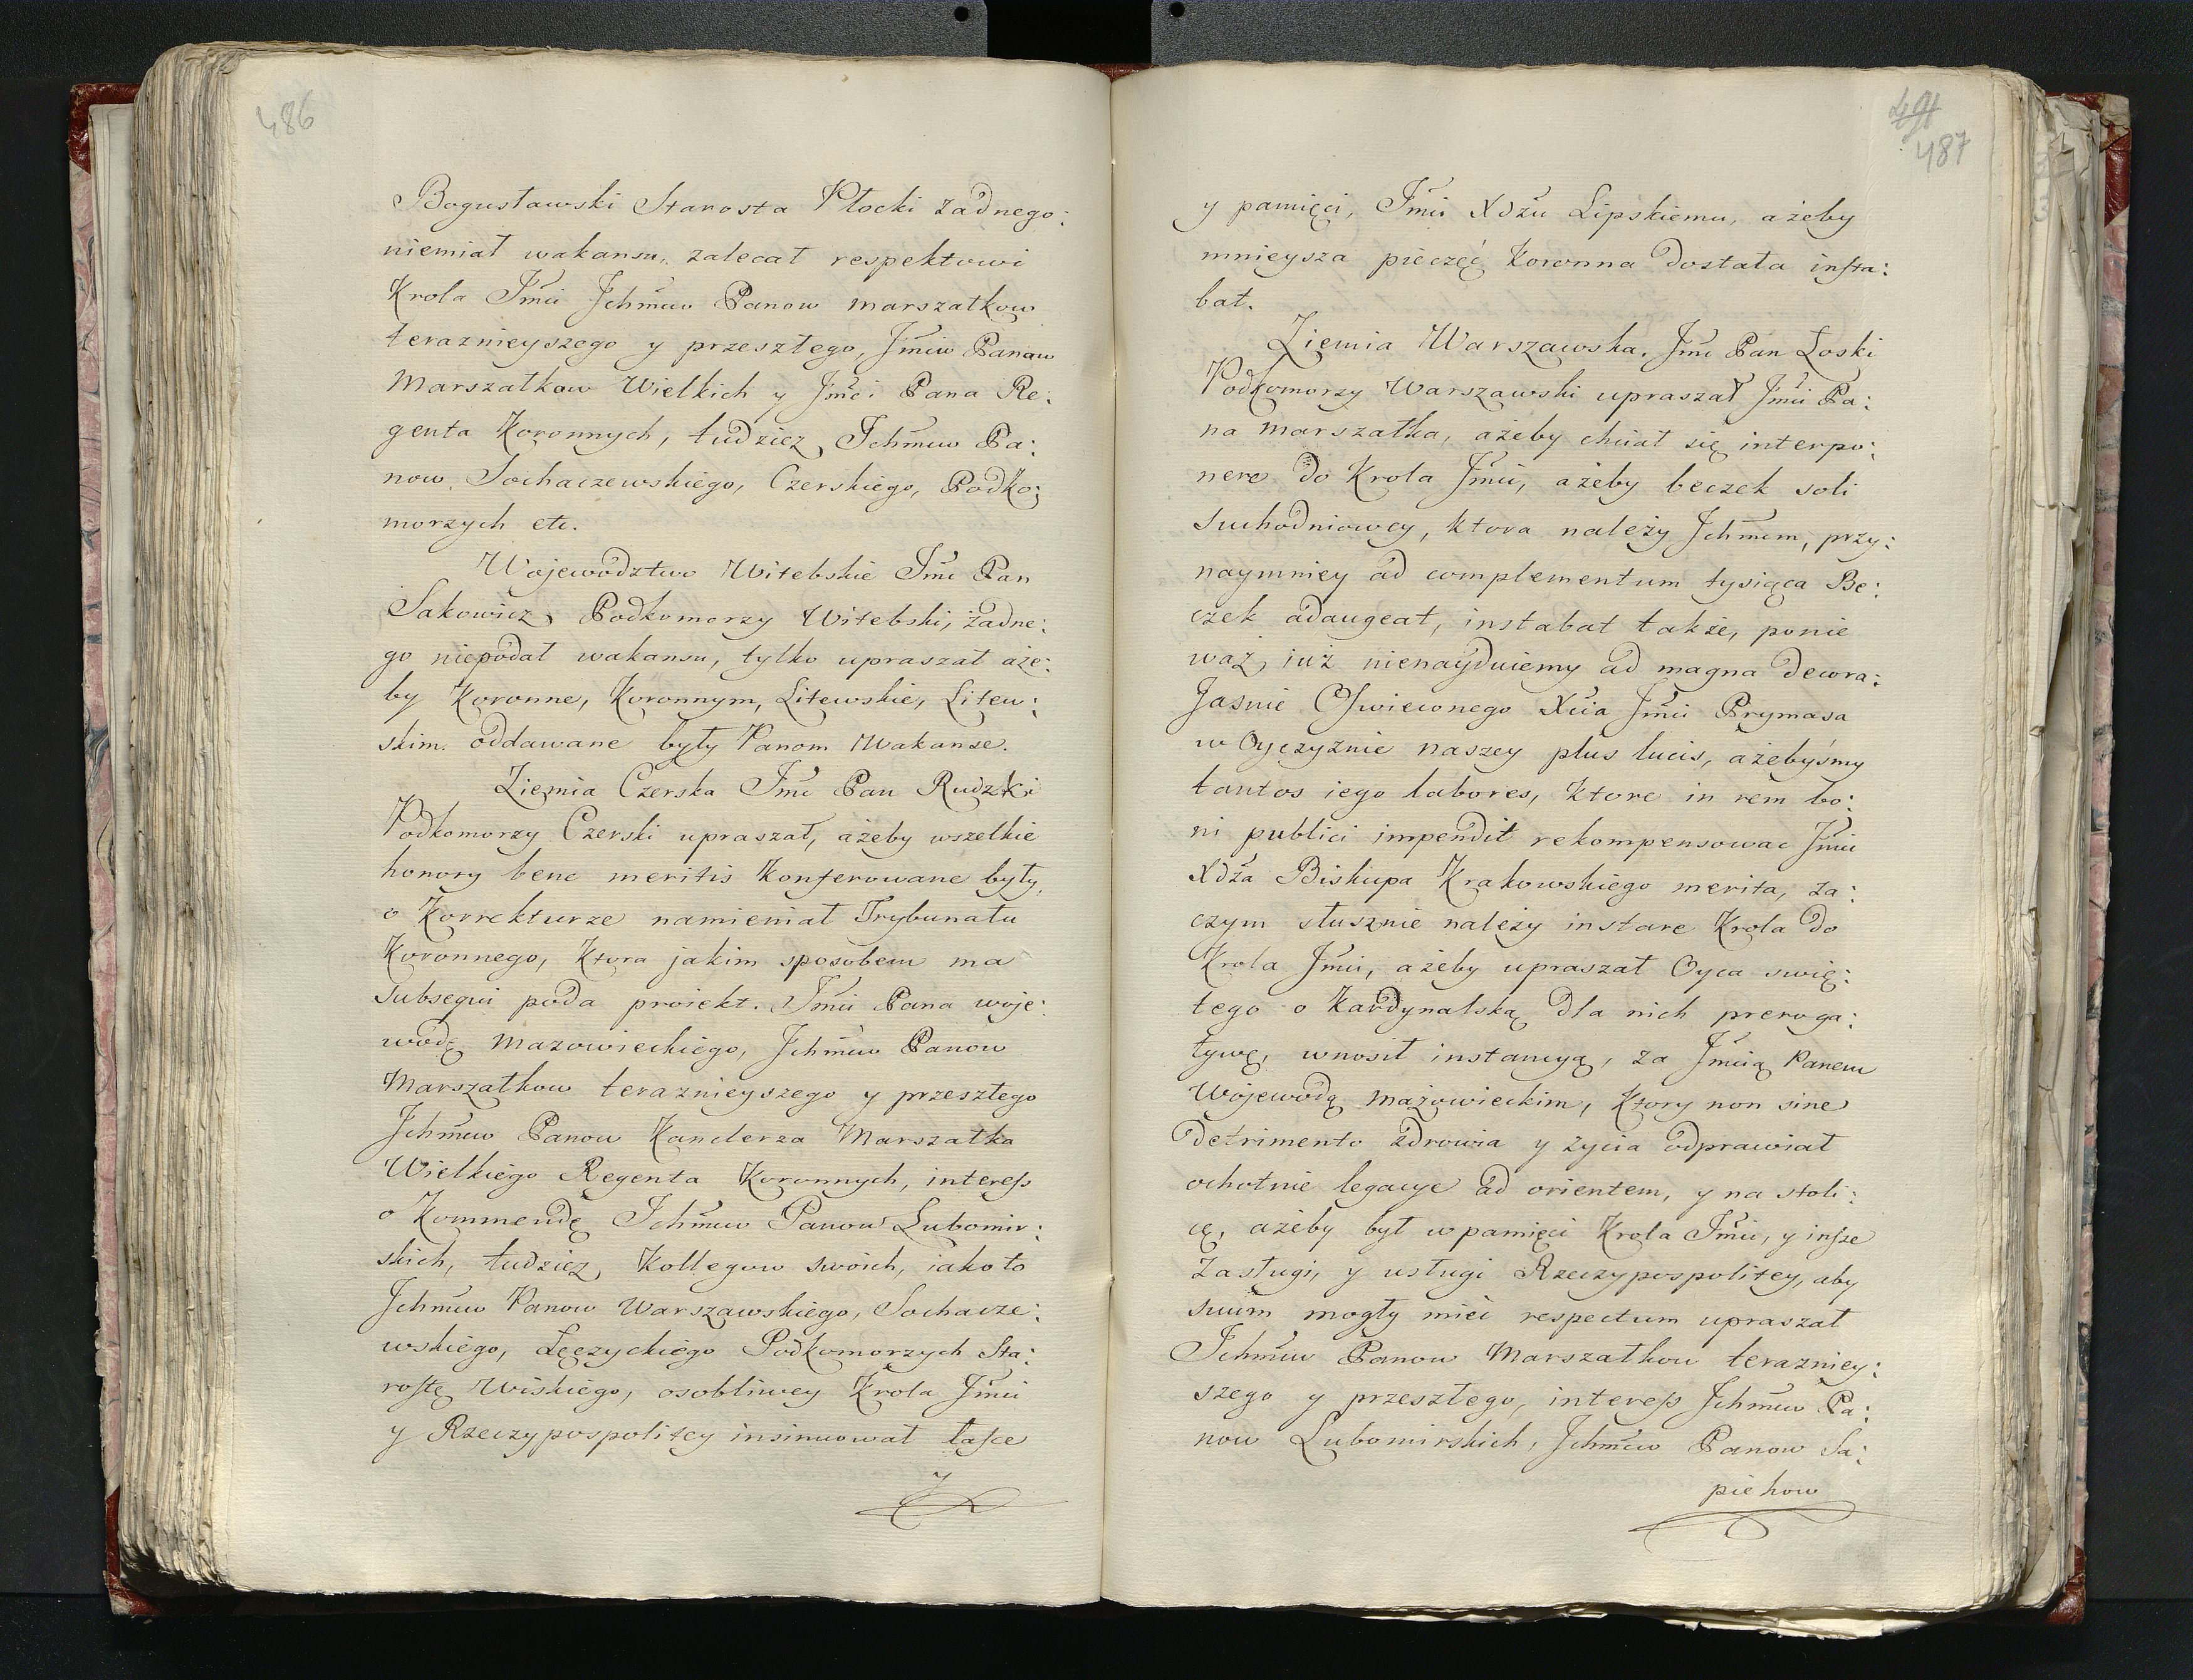 486
Bogusławski Starosta Płocki żadnego:
niemiał wakansu, zalecał respektowi
Krola Jmći Jchmćiow Panow Marszałkow
terazniejszego y przeszłego, Jmćiow Panow
Marszałkow Wielkich y Jmći Pana Re:
genta Koronnych, tudziez Jchmćiow Pa:
now Sochaczewskiego, Czerskiego, Podko:
morzych etc.
Województwo Witebskie Jmć Pan
Sakowicz Podkomorzy Witebski, żadne:
go niepodał wakansu, tylko upraszał aże:
by Koronne, Koronnym, Litewskie, Litew:
skim oddawane były Panom Wakanse.
Ziemia Czerska Jmć Pan Rudzki
Podkomorzy Czerski upraszał, ażeby wszelkie
honory bene meritis konferowane były,
o Korrekturze namieniał Trybunału
Koronnego, Ktora jakim sposobem ma
subsequi poda proiekt. Jmći Pana woje:
wodę Mazowieckiego, Jchmćiow Panow
Marszałkow terazniejszego y przeszłego
Jchmćiow Panow Kanclerza Marszałka
Wielkiego Regenta Koronnych, interess
o Kommendę Jchmćiow Panow Lubomir:
skich, tudziez Kollegow swoich, iako to
Jchmćiow Panow Warszawskiego, Sochacze:
wskiego, Łęczyckiego Podkomorzych Sta:
rostę Wiskiego, osobliwey Krola Jmći
y Rzeczypospolitey insinuował łasce
y
491
487
y pamięci, Jmći Xdzu Lipskiemu, ażeby
mnieysza pieczęć Koronna dostała insta:
bat.
Ziemia Warszawska. Jmć Pan Łoski
Podkomorzy Warszawski upraszał Jmći Pa:
na Marszałka, ażeby chciał się interpo:
nere do Krola Jmći, ażeby beczek soli
Suchodniowey, ktora należy Jchmćiom, przy:
naymniey ad complementum tysiąca Be:
czek adaugeat, instabat także, ponie
waż iuż nienayduiemy ad magna decora:
Jasnie Oswieconego Xćia Jmći Prymasa
w Oyczyznie naszey plus lucis, ażebyśmy
tantos iego labores, Ktore in rem bo:
ni publici impendit rekompensowac Jmći
Xdza Biskupa Krakowskiego merita, za:
czym słusznie należy instare Krola do
Krola Jmći, ażeby upraszał Oyca swię:
tego o Kardynalską dla nich preroga:
tywę, wnosił instancyą, za Jmcią Panem
Wojewodą Mazowieckim, Ktory non sine
detrimento zdrowia y zycia odprawiał
ochotnie legacye ad orientem, y na stoli:
cę, ażeby był w pamięci Krola Jmći, y insze
Zasługi, y usługi Rzeczypospolitey, aby
suum mogły mieć respectum upraszał
Jchmćiow Panow Marszałkow terazniey:
szego y przeszłego, interess Jchmćiow Pa:
now Lubomirskich, Jchmćiow Panow Sa:
piehow